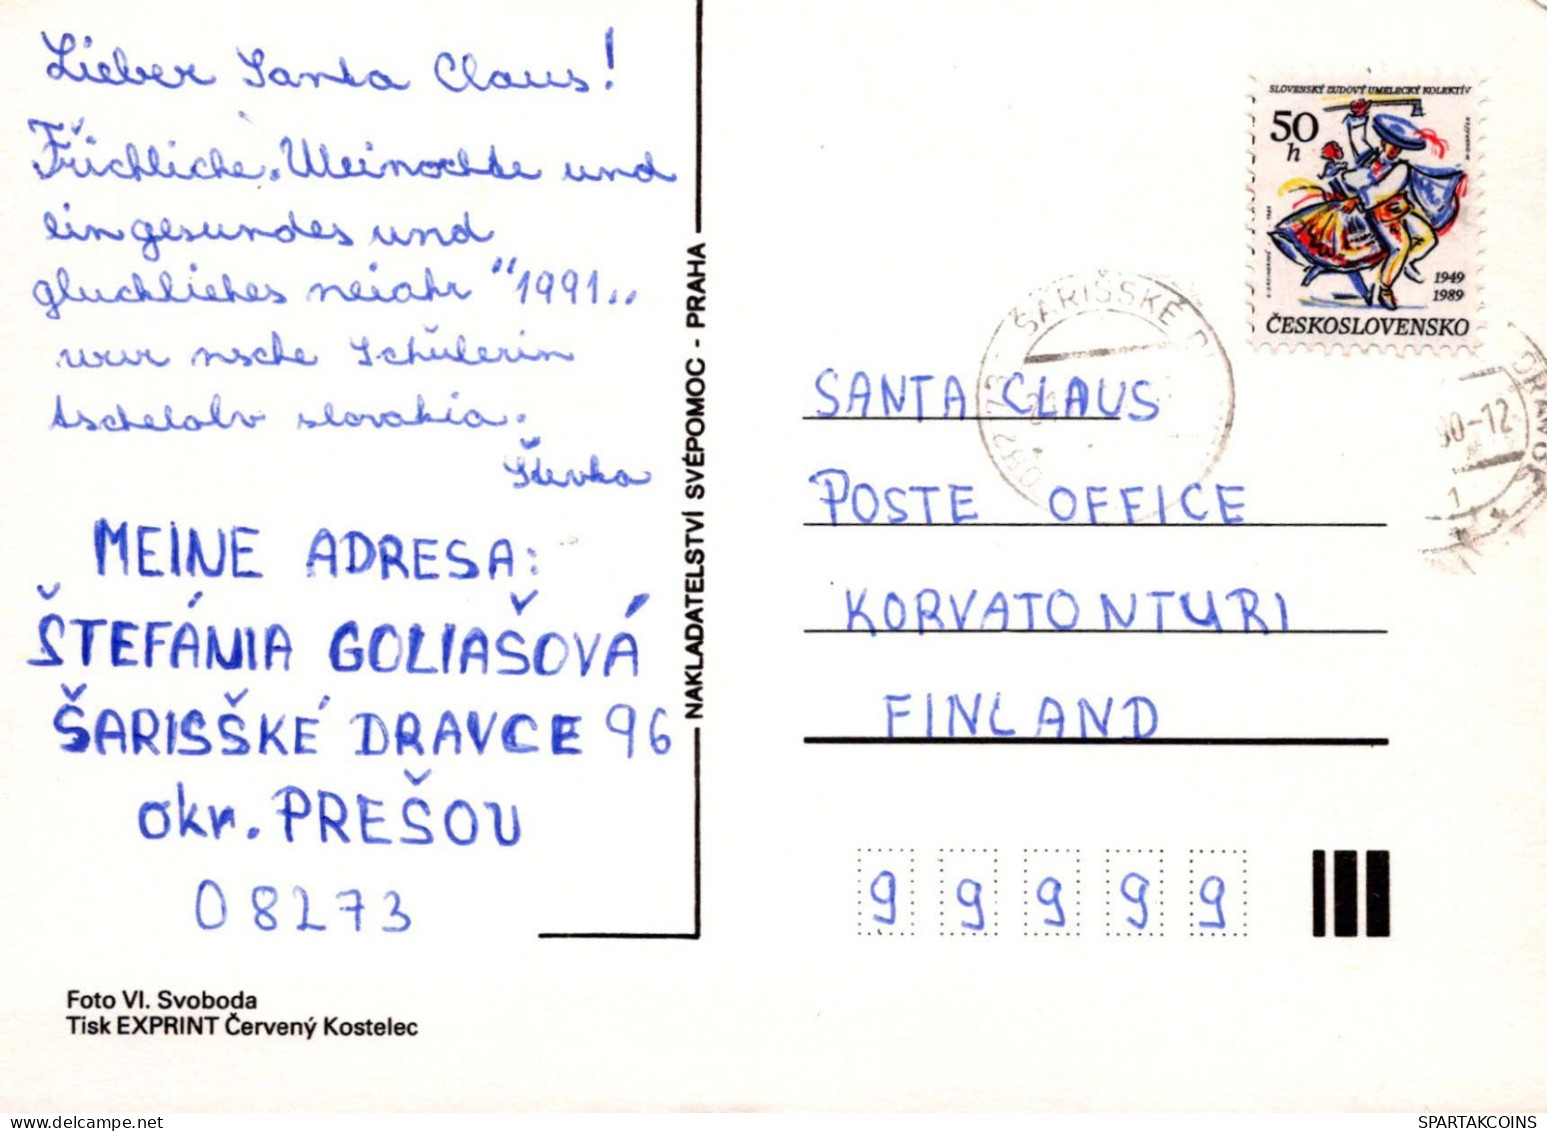 Lieber Santa Claus!
Früchliche. Weinochte und
ein gesundes und
gluckliches neiahr "1991..
wur nsche Schülerin
tschelolv slovakia.
Števka
MEINE ADRESA:
ŠTEFÁNIA GOLIAŠOVÁ
ŠARISŠKÉ DRAVCE 96
okr. PREŠOV
08273
Foto Vl. Svoboda
Tisk EXPRINT Červený Kostelec
NAKLADATELSTVÍ SVÉPOMOC - PRAHA
SLOVENSKÝ ĽUDOVÝ UMELECKÝ KOLEKTÍV
50
h
1949
1989
ČESKOSLOVENSKO
082 73 ŠARIŠSKÉ
90-12
1
SANTA CLAUS
POSTE OFFICE
KORVATONTURI
FINLAND
9 9 9 9 9
SPARTAKCOINS